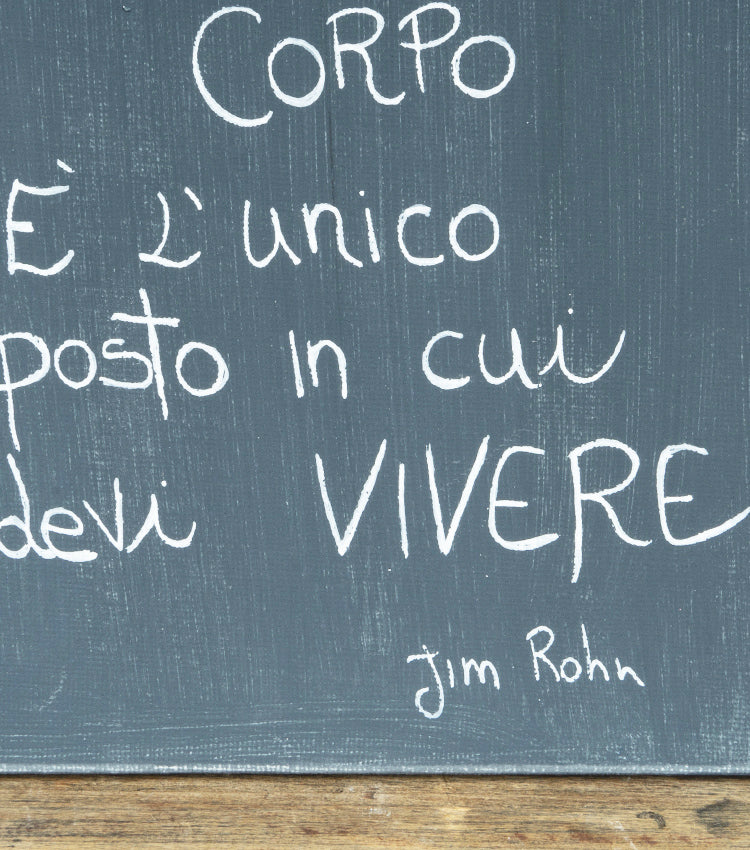 CORPO
È L'unico
posto in cui
devi VIVERE
Jim Rohn